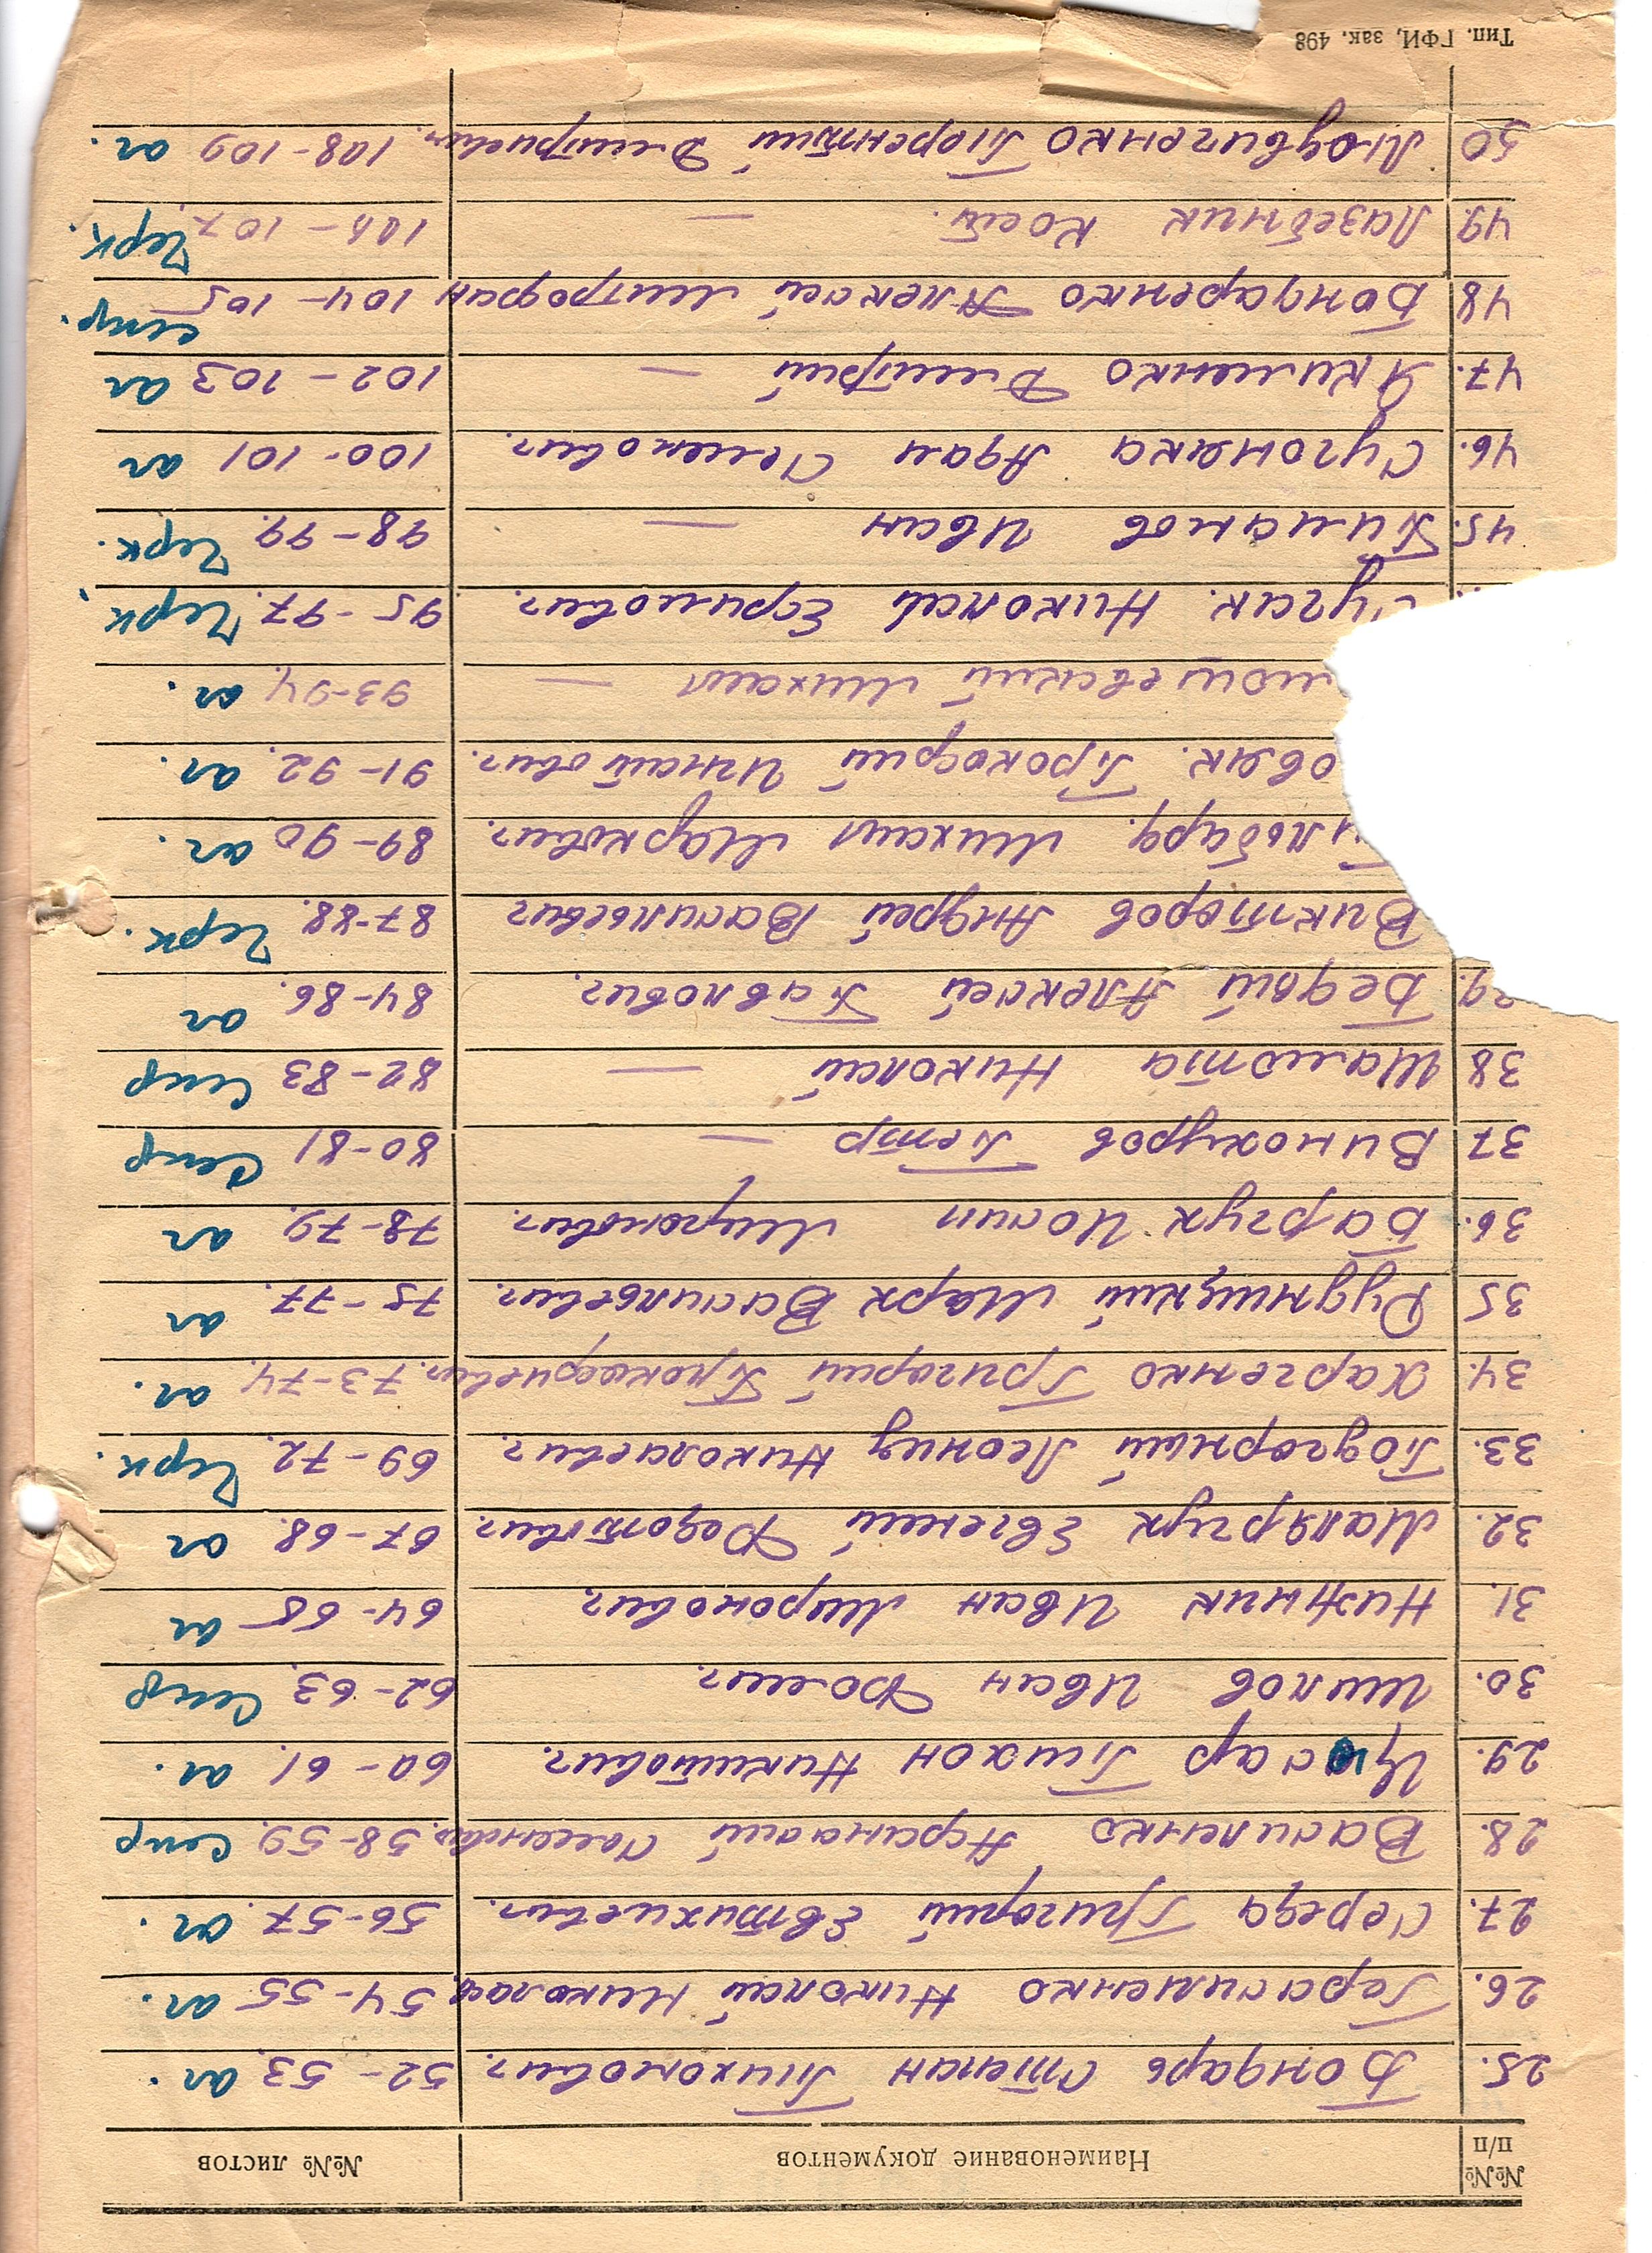 №№ п/п Наименование документов №№ листов
25. Бондарь Степан Тихонович. 52-53. ог.
26. Герасименко Николай Николаев. 54-55 ог.
27. Середа Григорий Евтихиевич. 56-57. ог.
28. Василенко Афанасий Семенович. 58-59. Спр
29. Цисар Тихон Никитович. 60-61. ог.
30. Шилов Иван Фомич. 62-63. Спр
31. Нижник Иван Миронович. 64-65 ог
32. Малярчук Евгений Федотович. 67-68. ог
33. Подгорный Леонид Николаевич. 69-72. Черк.
34. Харченко Григорий Прокофиевич. 73-74. ог.
35 Рудницкий Марк Васильевич. 75-77. ог
36. Барчук Иосип 78-79. ог
37 Винокуров Петр — 80-81 Спр
38 Шамота Николай — 82-83 Спр
39. Бедный Алексей Павлович. 84-86. ог
Викторов Андрей Васильевич 87-88. Черк.
ильбард. Михаил Маркович. 89-90 ог.
овяк. Прокофий Игнатович. 91-92. ог.
мошевский Михаил — 93-94. ог.
Николай Ефимович. 95-97. Черк.
45. Иван — 98-99. Черк.
46. Сугоняка Адам Семенович. 100-101 ог
47. Якименко Дмитрий — 102-103 ог
48 Бондаренко Алексей Митрофан 104-105 спр.
49. Лазебник Кость. — 106-107. Черк.
50 Людвиченко Терентий Дмитриевич. 108-109 ог.
Тип. ГФИ, зак. 498